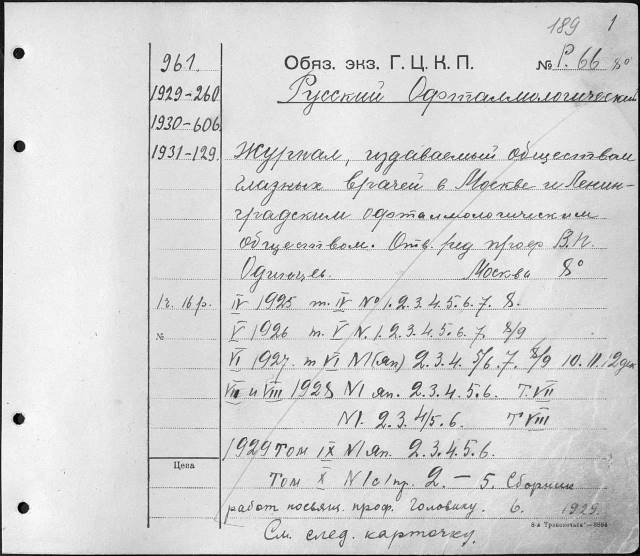 189 1
961. Обяз. экз. Г. Ц. К. П. № Р. 66 8°
1929-260 Русский Офталмологический
1930-606
1931-129. Журнал, издаваемый обществом
глазных врачей в Москве и Ленин-
градским офталмологическим
обществом. Отв. ред проф В.П.
Одинцев. Москва 8°
1 г. 16 р. IV 1925 т. IV № 1. 2. 3. 4. 5. 6. 7. 8.
№ V 1926 т. V N. 1. 2. 3. 4. 5. 6. 7. 8/9
VI 1927. т VI N1 (ян) 2. 3. 4. 5/6. 7. 8/9 10. 11. 12 дек
VII и VIII 1928 N1 ян. 2. 3. 4. 5. 6. Т. VII
N1. 2. 3. 4/5. 6. Т VIII
1929 том IX N1 ян. 2. 3. 4. 5. 6.
Цена
Том X N 2. — 5. Сборник
работ посвящ. проф. Головину. 6. 1929.
8-я Транспечать — 3894
См. след. карточку.